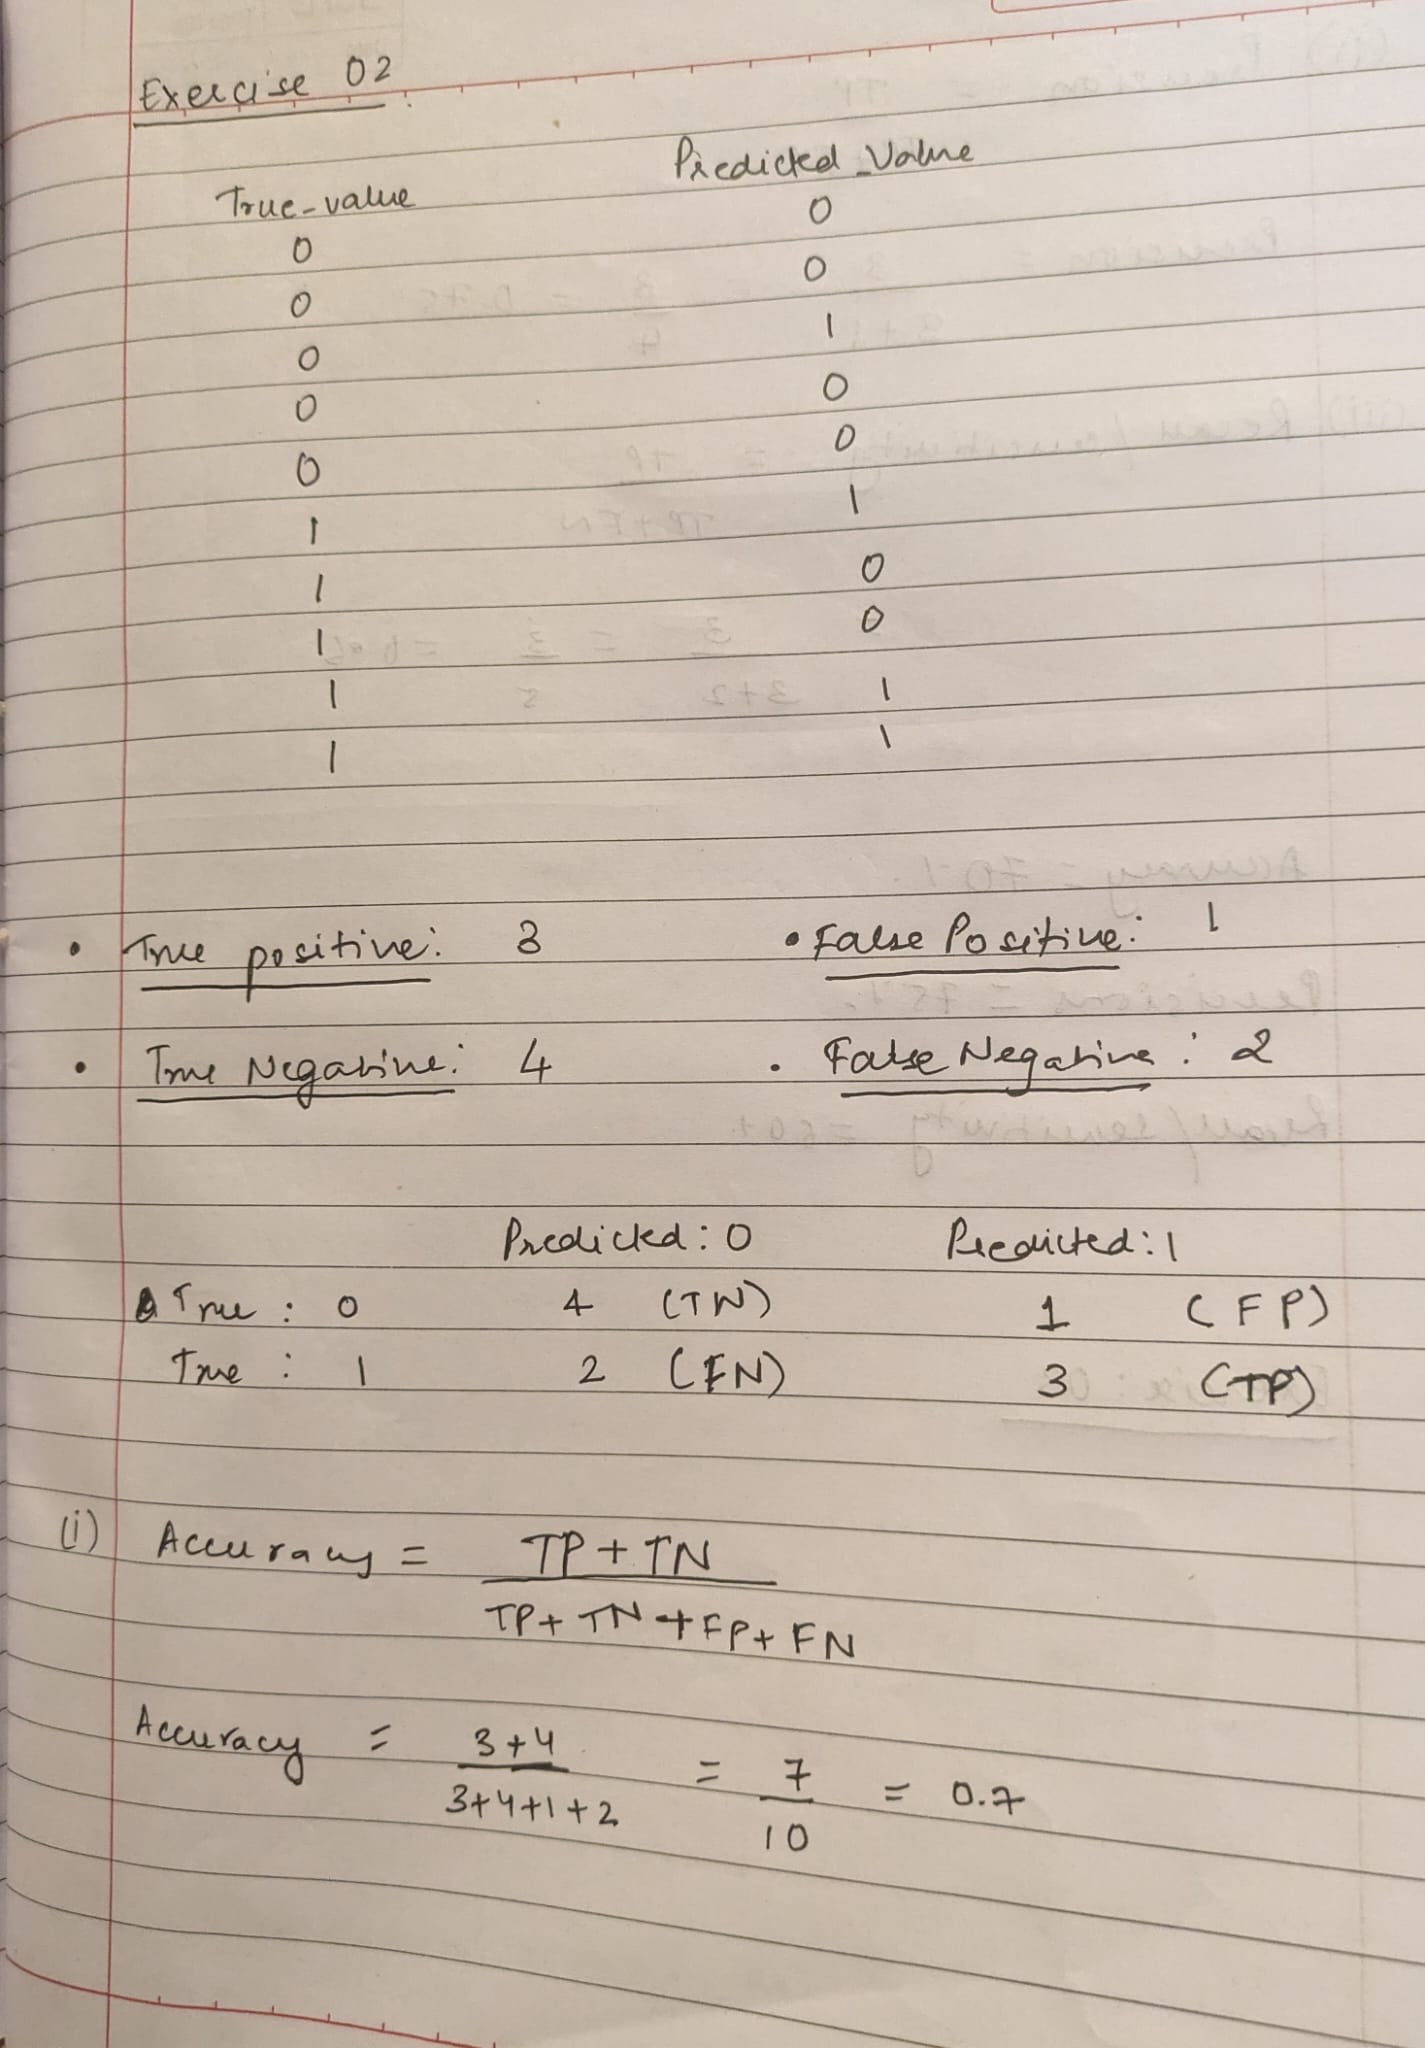 Exercise 02
True-value Predicted_Value
0 0
0 0
0 1
0 0
0 0
1 1
1 0
1 0
1 1
1 1
• True positive: 3 • False Positive: 1
• True Negative: 4 • False Negative: 2
Predicted: 0 Predicted: 1
True: 0 4 (TN) 1 (FP)
True: 1 2 (FN) 3 (TP)
(i) Accuracy = TP + TN
TP + TN + FP + FN
Accuracy = 3+4 = 7 = 0.7
3+4+1+2 10